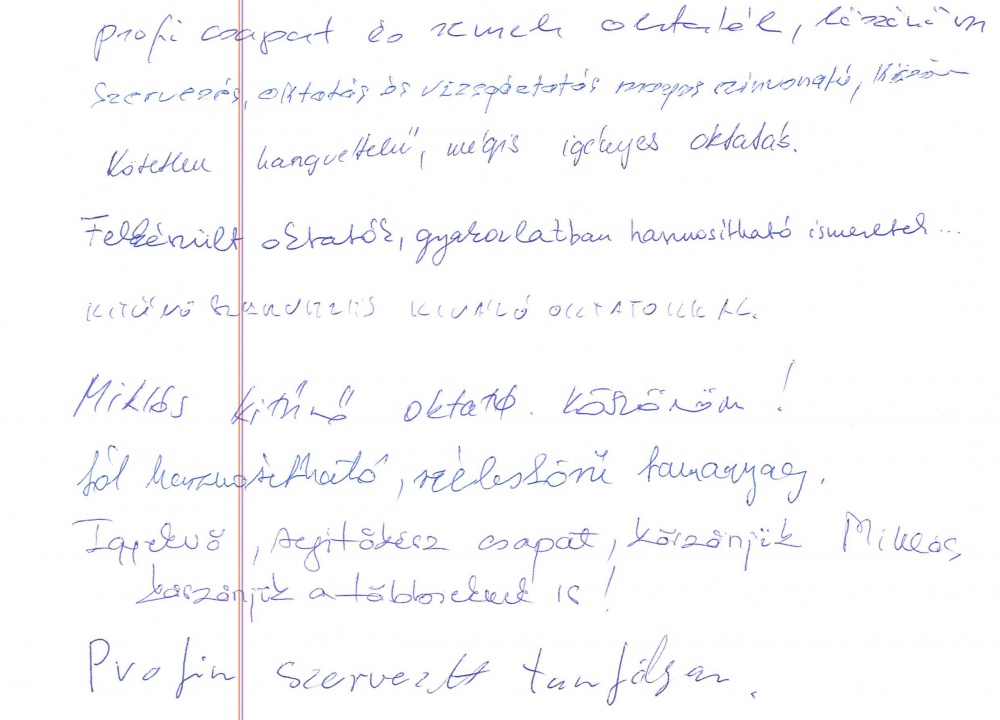 profi csapat és remek oktatók, köszönöm
Szervezés, oktatás és vizsgáztatás magas színvonalú, köszön
Kötetlen hangvételű, mégis igényes oktatás.
Felkészült oktatók, gyakorlatban hasznosítható ismeretek...
KITŰNŐ SZERVEZÉS KIVÁLÓ OKTATÓKKAL.
Miklós kitűnő oktató. Köszönöm!
Jól hasznosítható, széleskörű tananyag.
Igyekvő, segítőkész csapat, köszönjük Miklós,
köszönjük a többieknek is!
Profin szervezett tanfolyam.